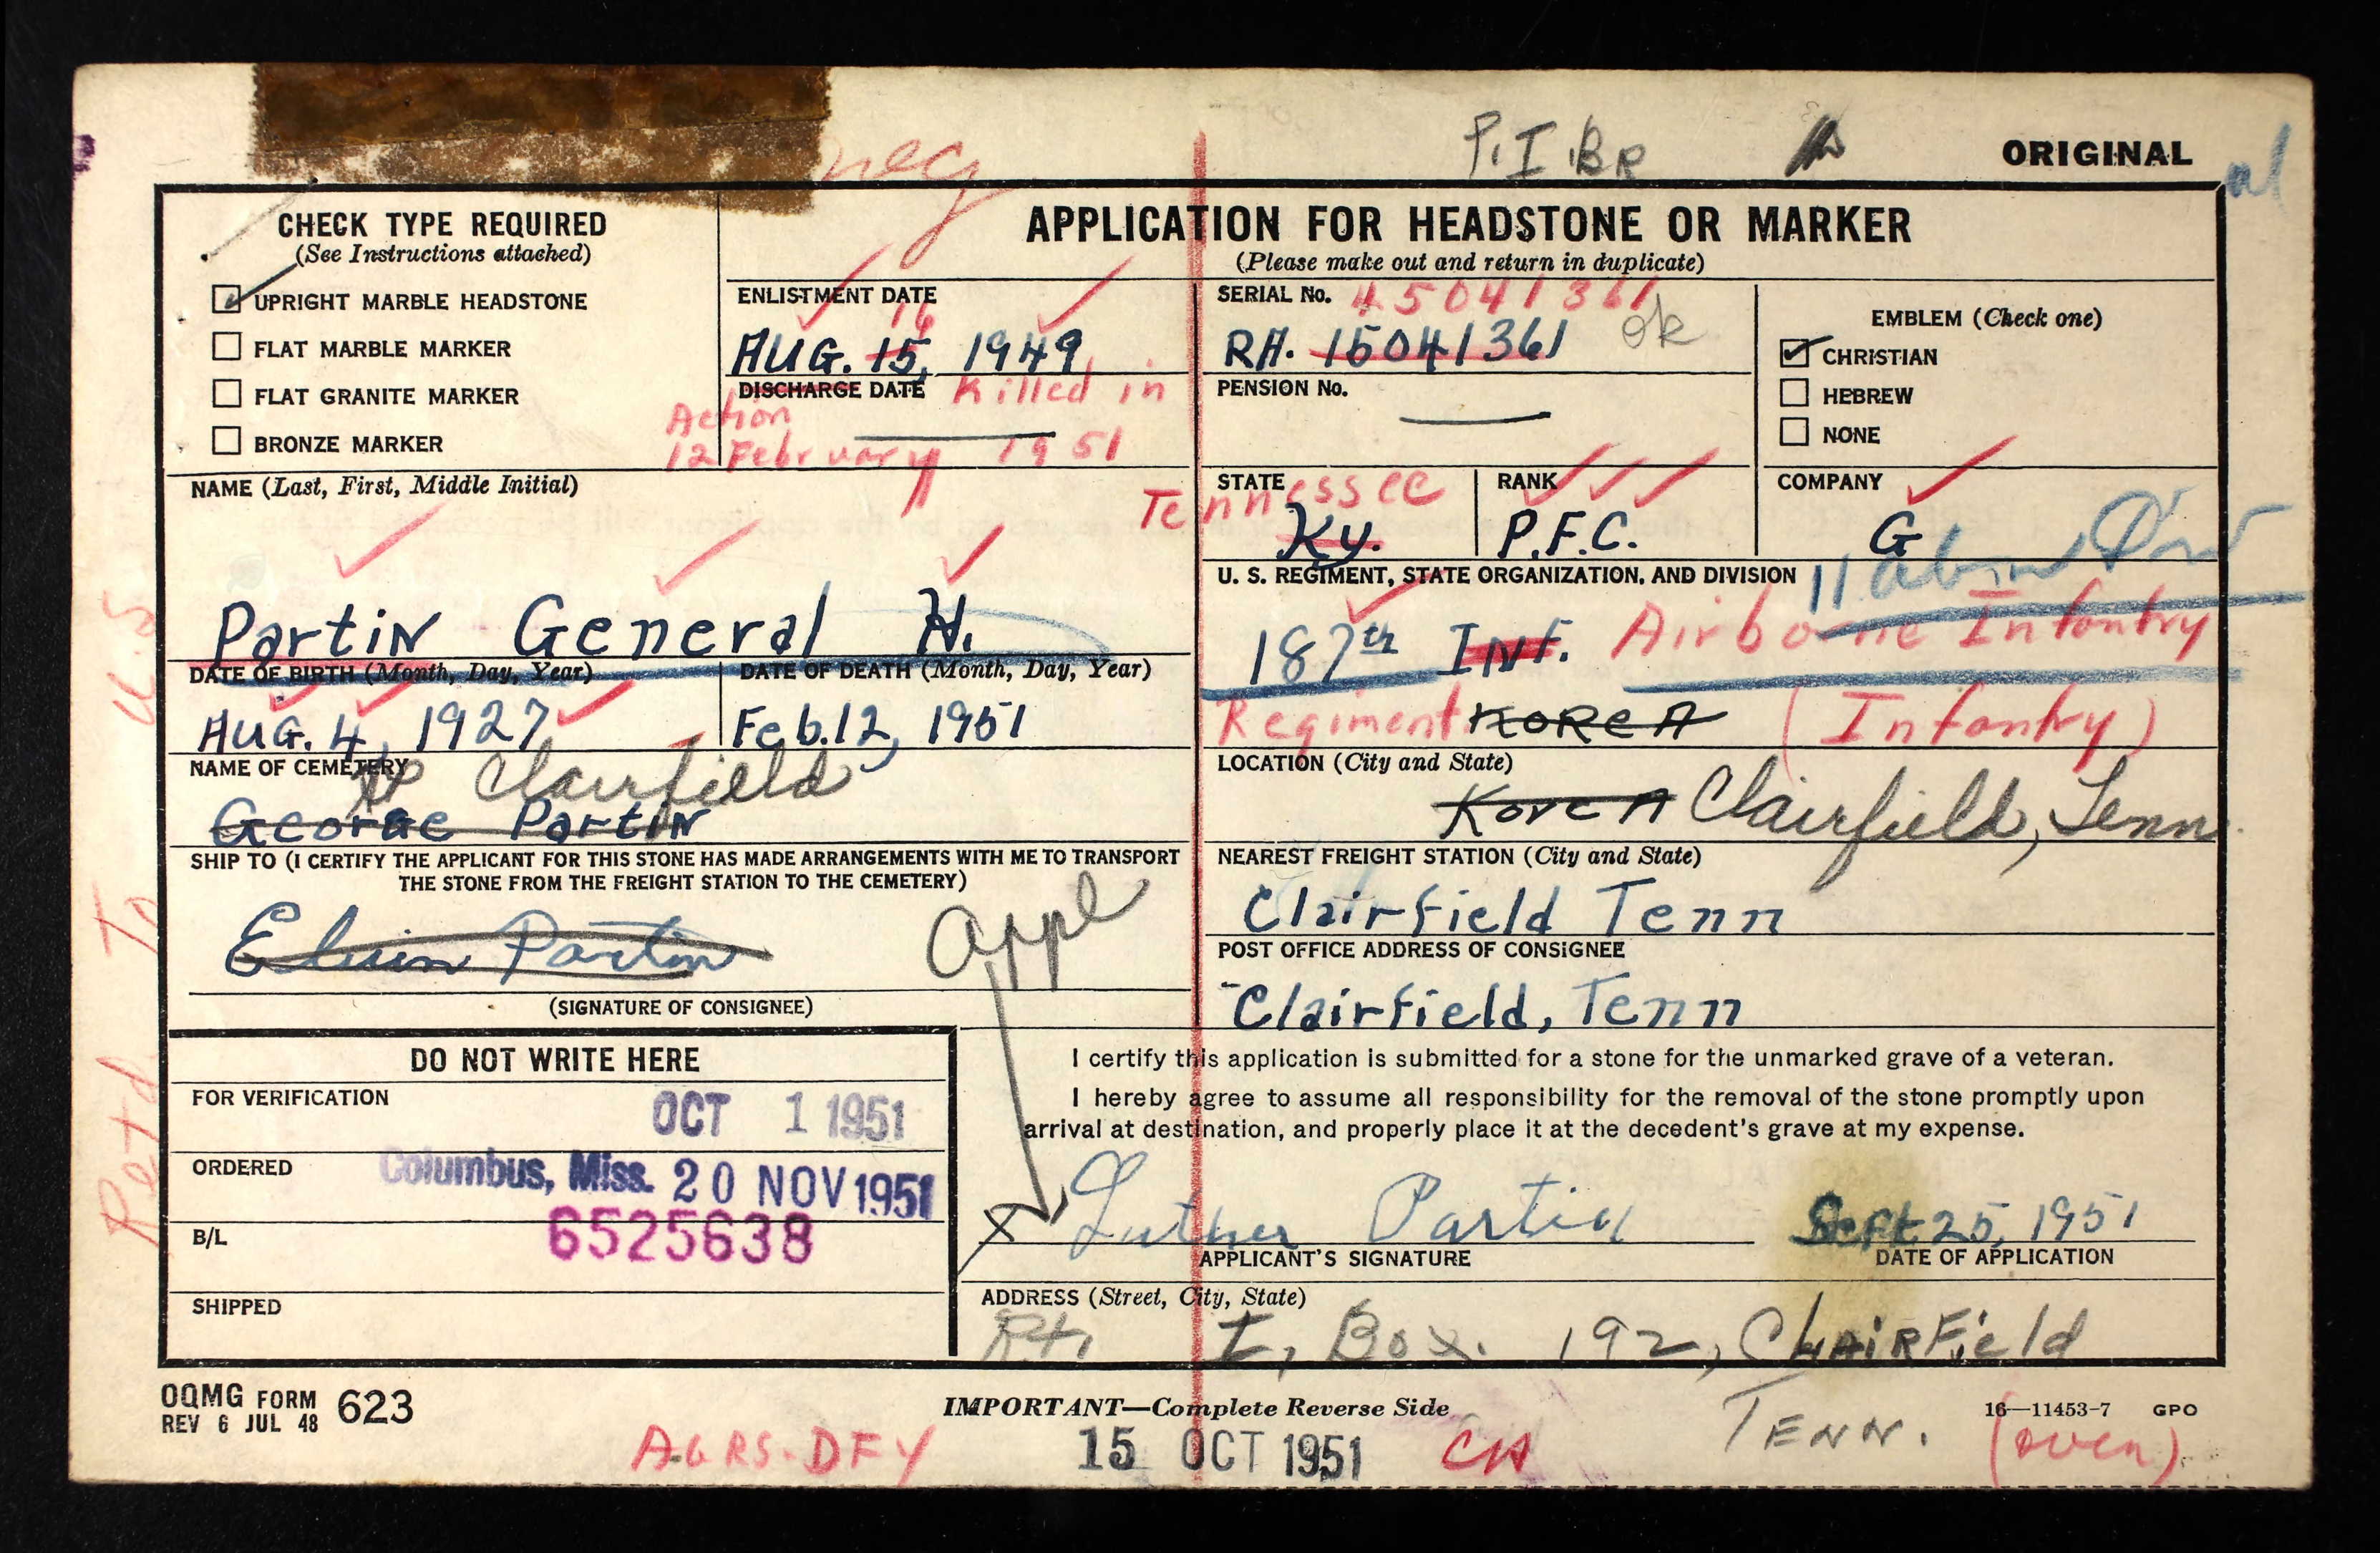 neg
P.I.BR
ORIGINAL
CHECK TYPE REQUIRED
(See Instructions attached)
UPRIGHT MARBLE HEADSTONE
FLAT MARBLE MARKER
FLAT GRANITE MARKER
BRONZE MARKER
APPLICATION FOR HEADSTONE OR MARKER
(Please make out and return in duplicate)
ENLISTMENT DATE
16
AUG. 15, 1949
DISCHARGE DATE Killed in
Action
12 February 1951
SERIAL No. 45041361
RA. 15041361 ok
PENSION No.
EMBLEM (Check one)
CHRISTIAN
HEBREW
NONE
NAME (Last, First, Middle Initial)
Partin General H.
STATE Tennessee
Ky.
RANK
P.F.C.
COMPANY
G
U. S. REGIMENT, STATE ORGANIZATION, AND DIVISION 11 abn Div
187th INF. Airborne Infantry
Regiment KOREA (Infantry)
DATE OF BIRTH (Month, Day, Year)
AUG. 4, 1927
DATE OF DEATH (Month, Day, Year)
Feb. 12, 1951
NAME OF CEMETERY
Clairfield
George Partin
LOCATION (City and State)
Korea Clairfield, Tenn.
SHIP TO (I CERTIFY THE APPLICANT FOR THIS STONE HAS MADE ARRANGEMENTS WITH ME TO TRANSPORT
THE STONE FROM THE FREIGHT STATION TO THE CEMETERY)
Elvin Partin
appl
(SIGNATURE OF CONSIGNEE)
NEAREST FREIGHT STATION (City and State)
Clairfield Tenn
POST OFFICE ADDRESS OF CONSIGNEE
Clairfield, Tenn
DO NOT WRITE HERE
FOR VERIFICATION
OCT 1 1951
ORDERED
Columbus, Miss. 20 NOV 1951
B/L
6525638
SHIPPED
I certify this application is submitted for a stone for the unmarked grave of a veteran.
I hereby agree to assume all responsibility for the removal of the stone promptly upon
arrival at destination, and properly place it at the decedent's grave at my expense.
X Luther Partin
Sept 25, 1951
APPLICANT'S SIGNATURE
DATE OF APPLICATION
ADDRESS (Street, City, State)
Rt. I, Box. 192, ClairField
TENN.
Retd To U.S
OQMG FORM 623
REV 6 JUL 48
IMPORTANT—Complete Reverse Side
16—11453-7 GPO
AGRS-DFY
15 OCT 1951
CH
(over)